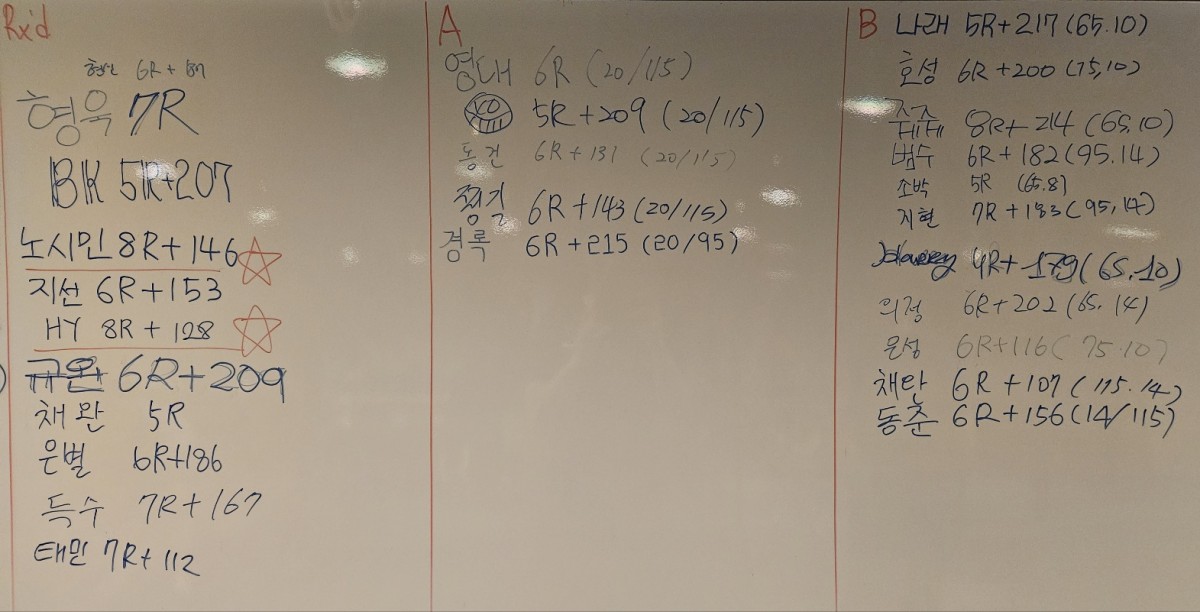 Rx'd
6R + 187
형욱 7R
BK 5R+207
노시민 8R+146
지선 6R+153
HY 8R + 128
규완 6R+209
채완 5R
은별 6R+186
득수 7R+167
태민 7R+112
A
영대 6R (20/115)
5R+209 (20/115)
동건 6R+131 (20/115)
6R+143 (20/115)
경록 6R+215 (20/95)
B
나래 5R+217 (65.10)
호성 6R+200 (75,10)
쥬쥬
베베 8R+214 (65.10)
범수 6R+182 (95.14)
소박 5R (65.8)
지현 7R+183 (95,14)
4R+179 (65.10)
의정 6R+202 (65.14)
은성 6R+116 (75.10)
채탄 6R+107 (115.14)
동춘 6R+156 (14/115)